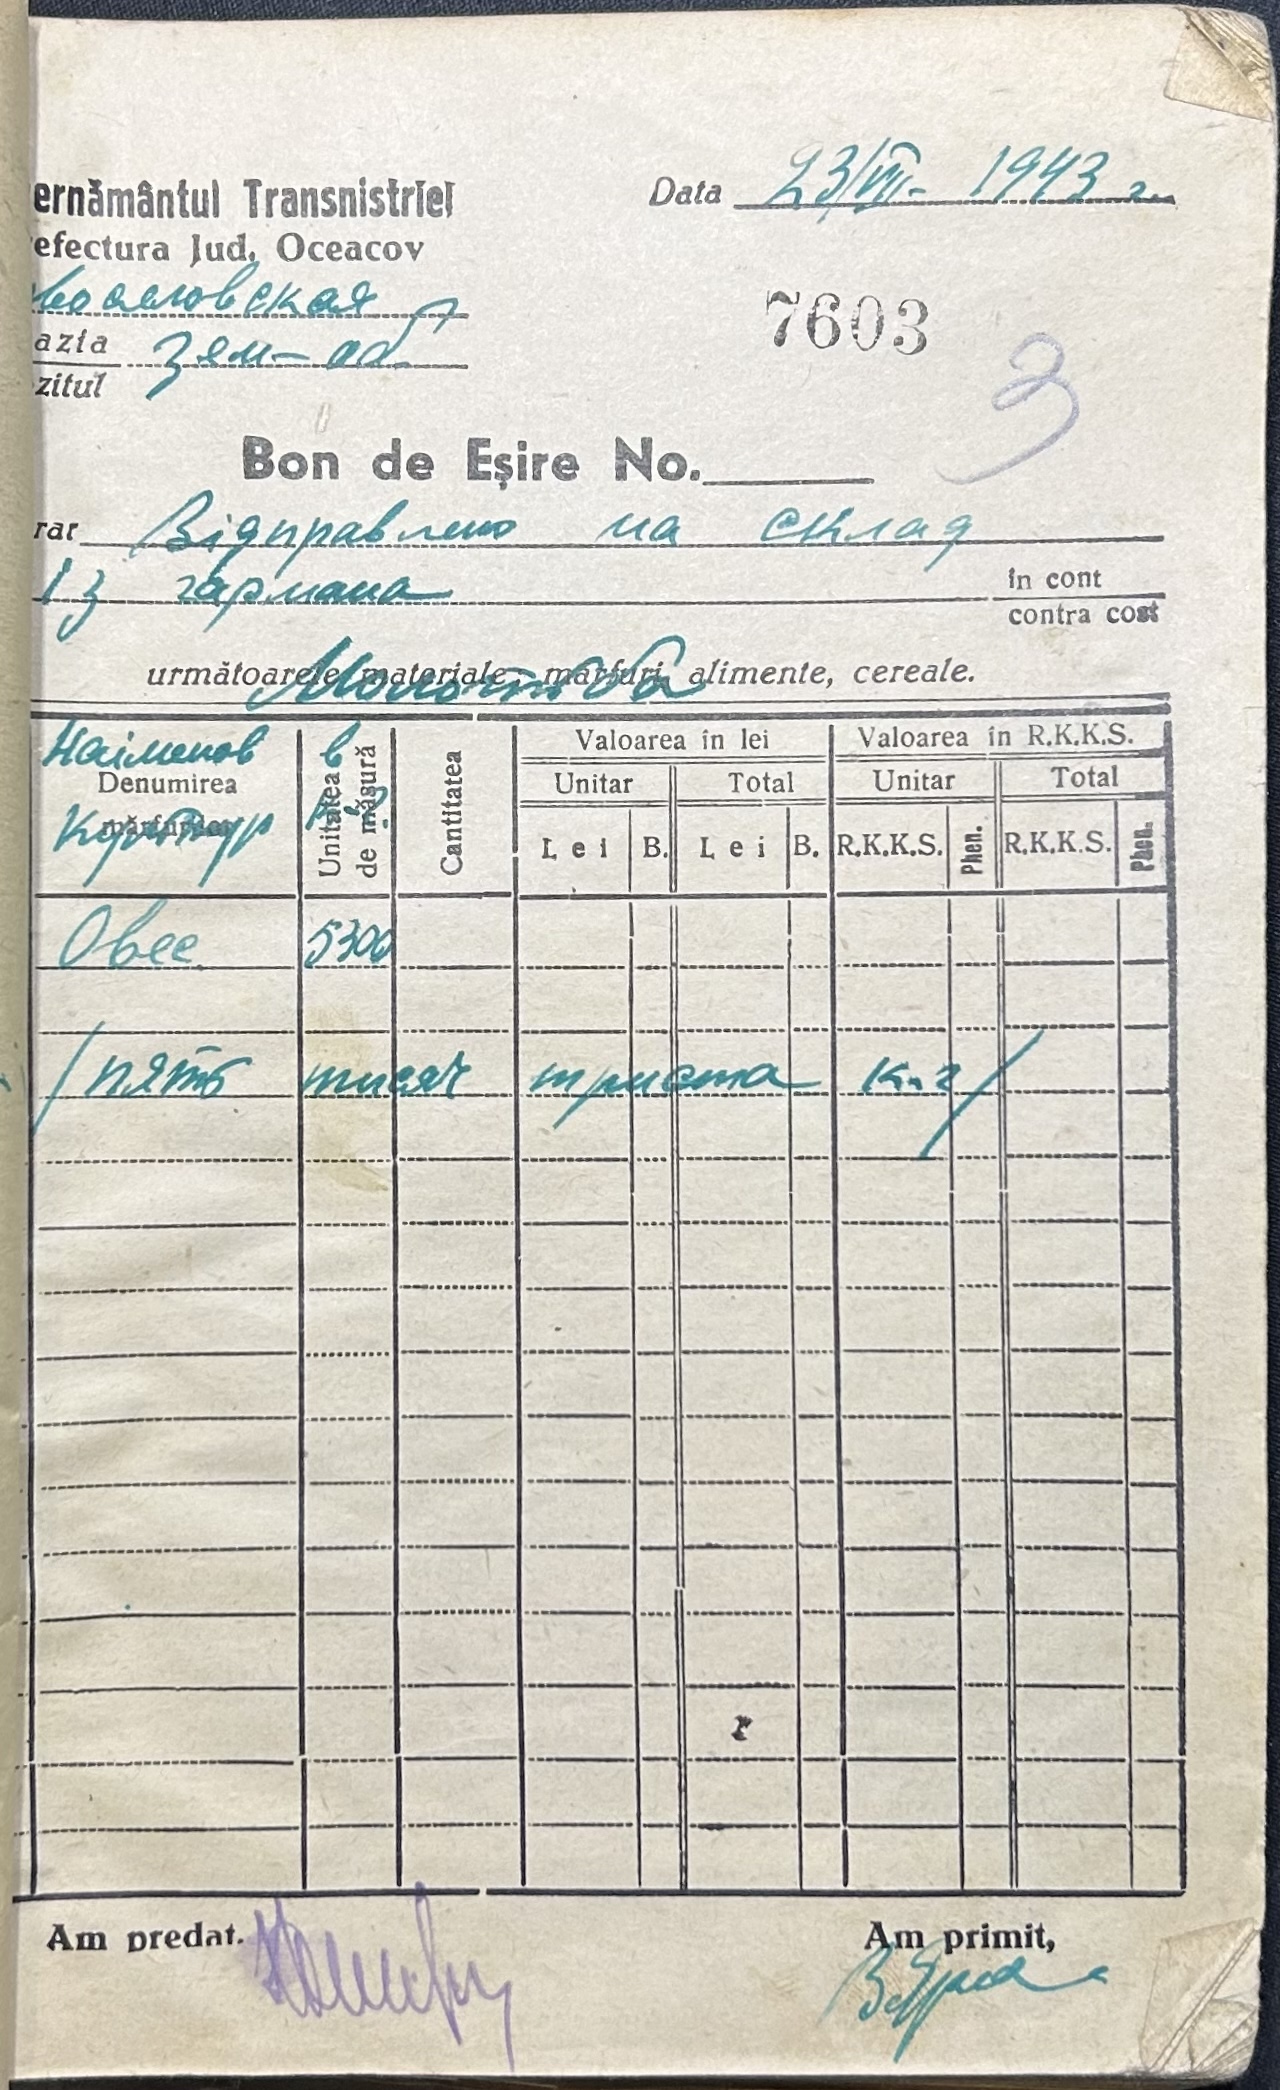 ernământul Transnistriei
Data 23/VII- 1943 г.
efectura Jud. Oceacov
7603
azia зем-об
zitul
3
Bon de Eșire No.
rat Відправлено на склад
із гармана
în cont
contra cost
următoarele materiale, mărfuri, alimente, cereale.
Молотьба
Наіменов
Культур
в
Denumirea
mărfurilor
Unitatea
de măsură
Cantitatea
Valoarea în lei
Valoarea în R.K.K.S.
Unitar
Total
Unitar
Total
Lei B. Lei B. R.K.K.S. Phen. R.K.K.S. Phen.
Овес 5300
/пять тисяч триста к.г/
Am predat.
Am primit,